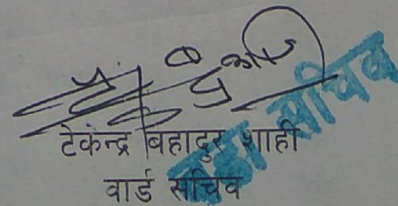 टेकेन्द्र बहादुर शाही
वार्ड सचिव
वडा सचिव